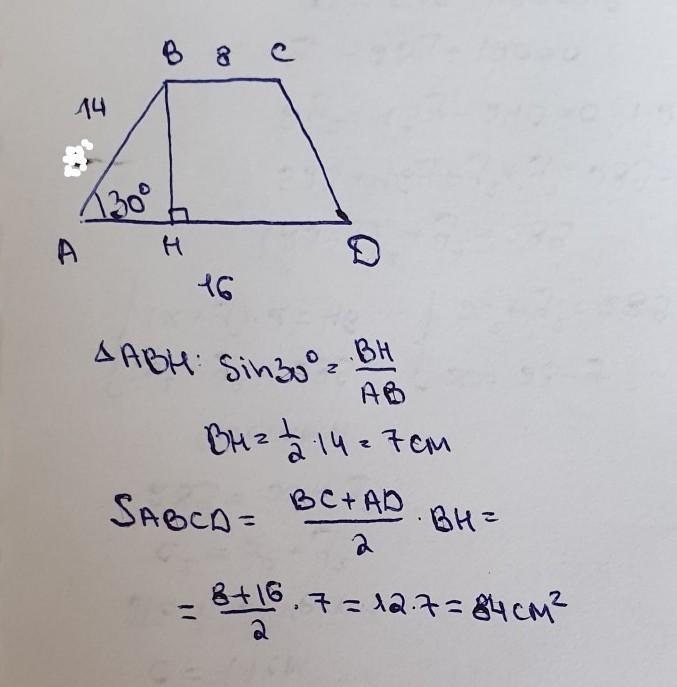 B 8 C
14
30°
A H D
16
△ABH: sin30° = BH/AB
BH = 1/2 · 14 = 7 см
SABCD = BC+AD/2 · BH =
= 8+16/2 · 7 = 12 · 7 = 84 см²